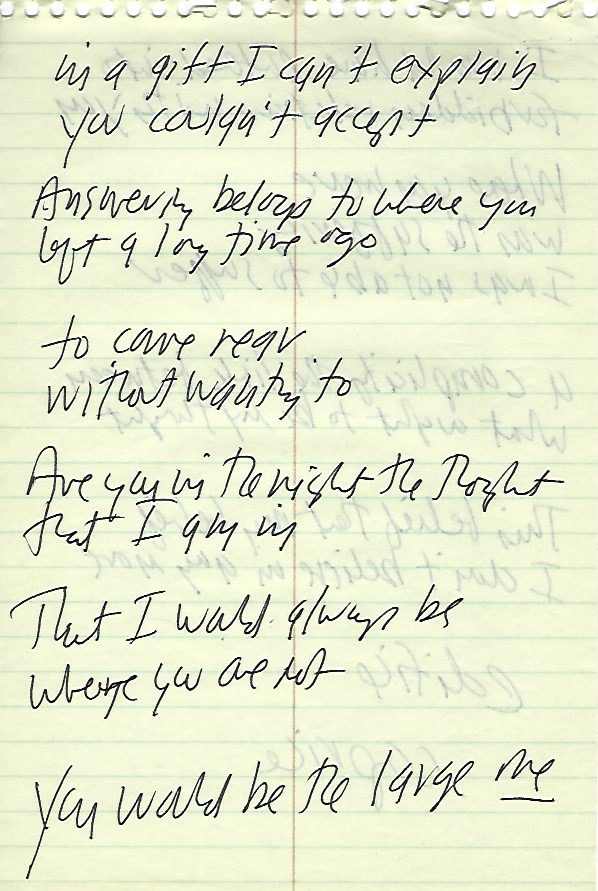 in a gift I can't explain
you couldn't accept
Answering belongs to where you
left a long time ago
to come near
without wanting to
Are you in the night the thought
that I am in
That I would always be
where you are not
You would be the large me